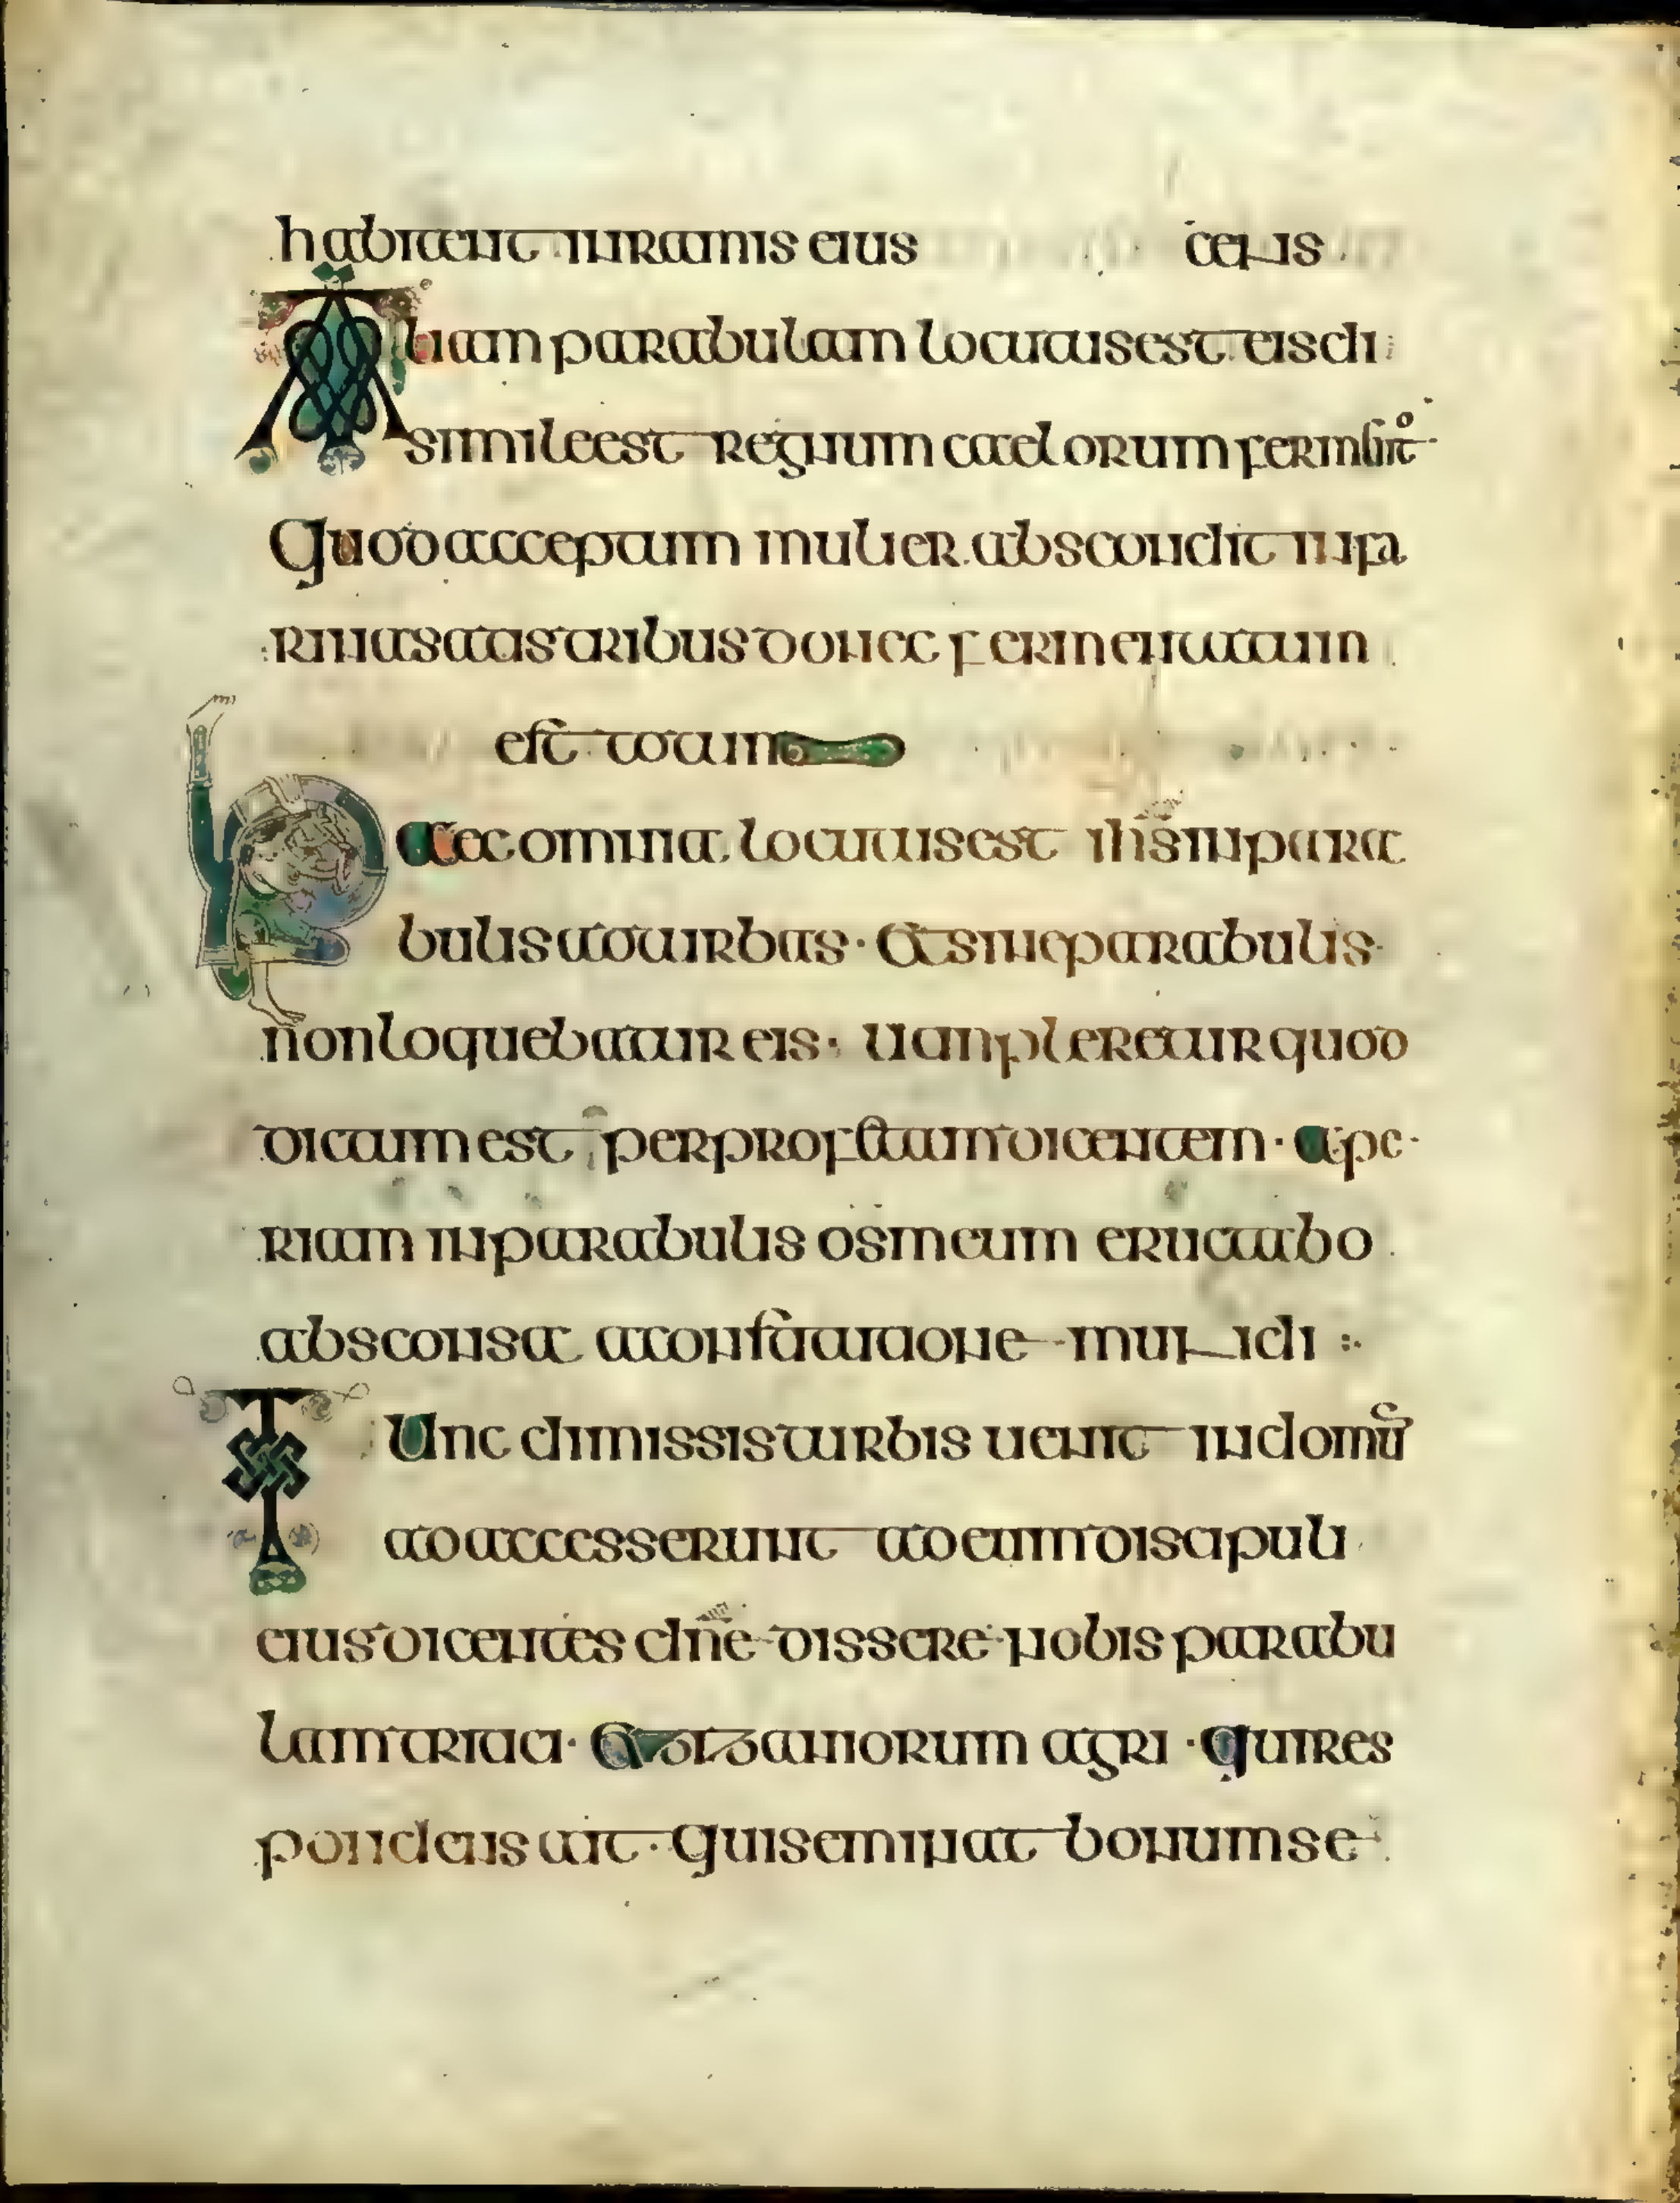 habitent in ramis eius celis
Aliam parabulam locutus est eis di
simile est regnum caelorum ferm
Quod acceptum mulier abscondit in fa
rinae satis tribus donec fermentatum
est totum
Haec omnia locutus est ihs in para
bulis ad turbas · Et sine parabulis
non loquebatur eis · ut impleretur quod
dictum est per profetam dicentem · ape
riam in parabulis os meum eructabo
absconsa a constitutione mundi :·
Tunc dimissis turbis uenit in domū
et accesserunt ad eum discipuli
eius dicentes dn̄e dissere nobis parabu
lam tritici · Et zizaniorum agri · qui res
pondens ait · Qui seminat bonum se